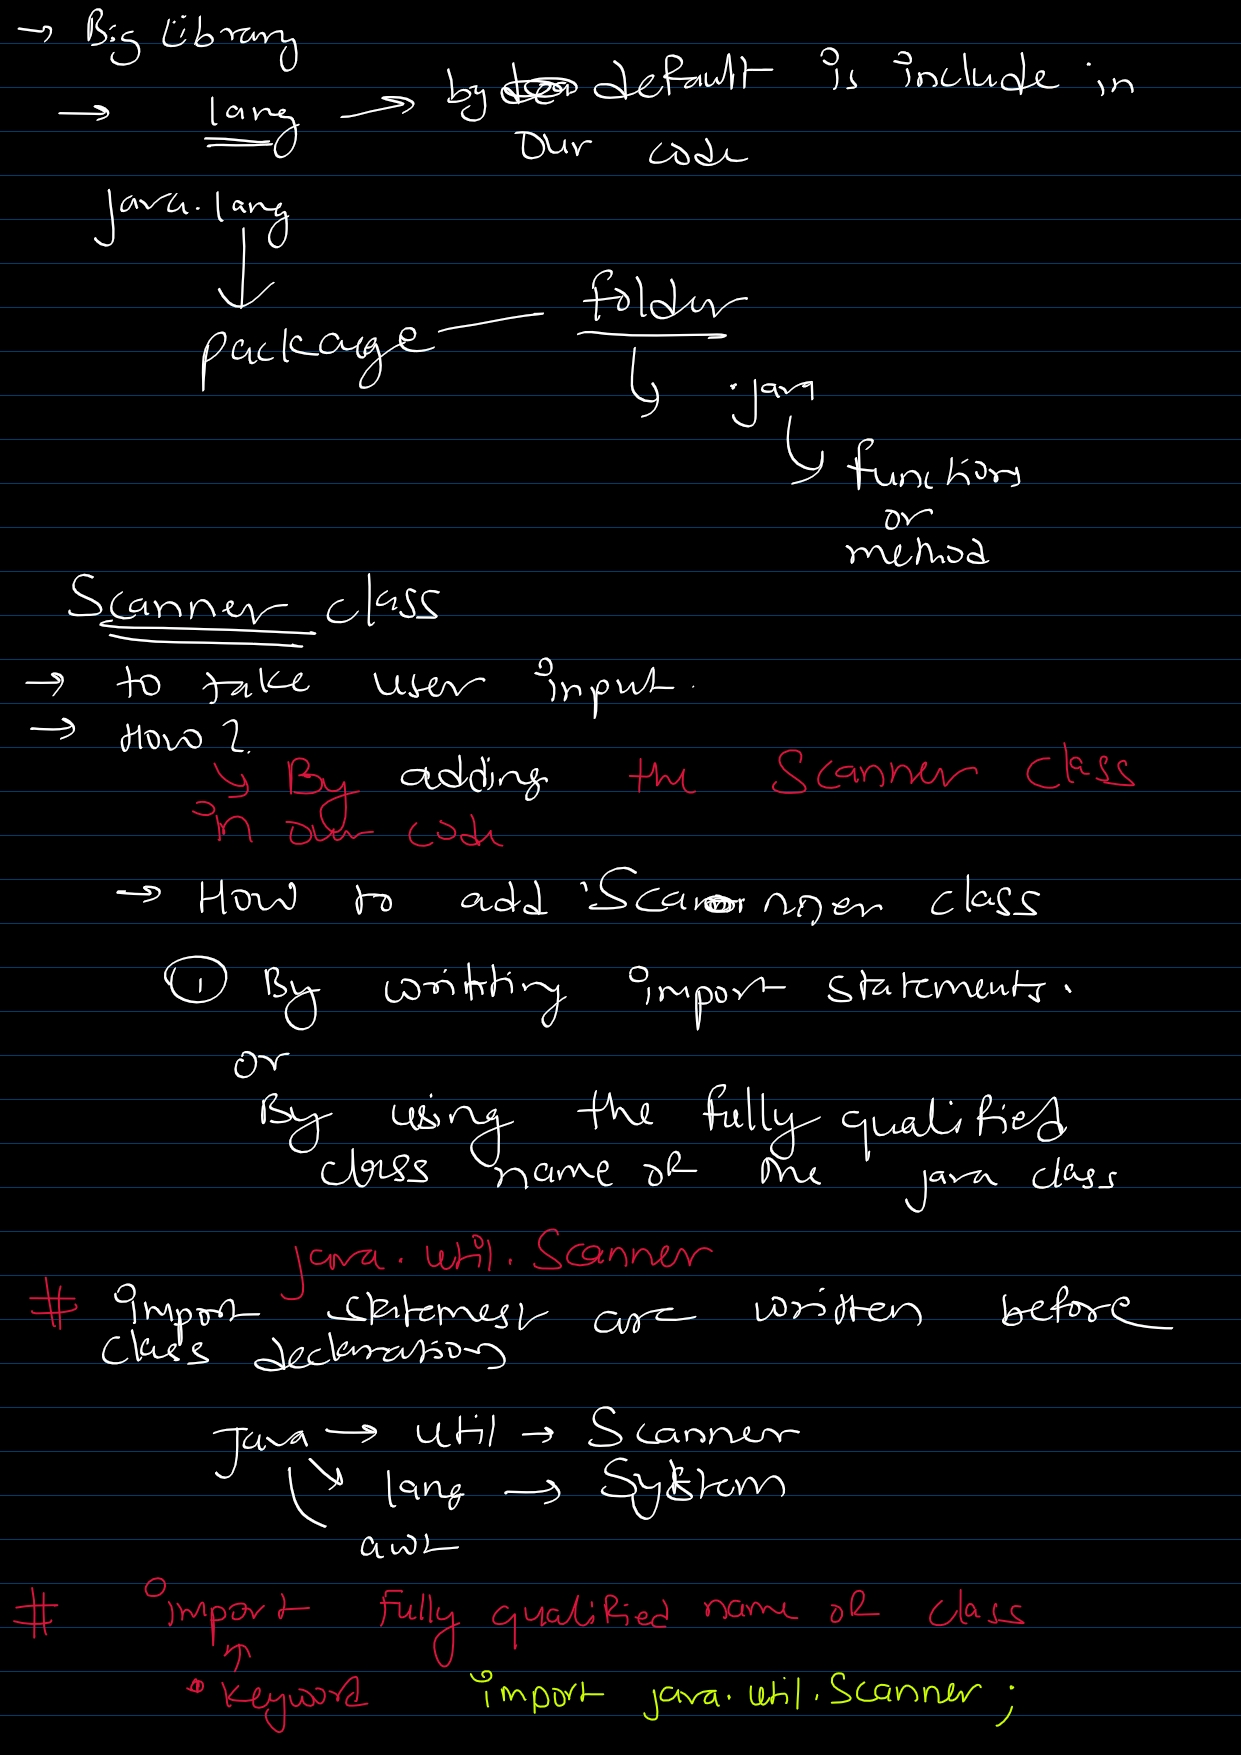 → Big Library
→ lang → by default is include in
our code
java.lang
package — folder
.java
functions
or
method
Scanner class
→ to take user input.
→ How?
By adding the Scanner class
in our code
→ How to add Scanner class
① By writting import statements.
or
By using the fully qualified
class name of the java class
java.util.Scanner
# import statement are written before
class declaration
Java → util → Scanner
lang → System
awt
# import fully qualified name of class
keyword import java.util.Scanner;